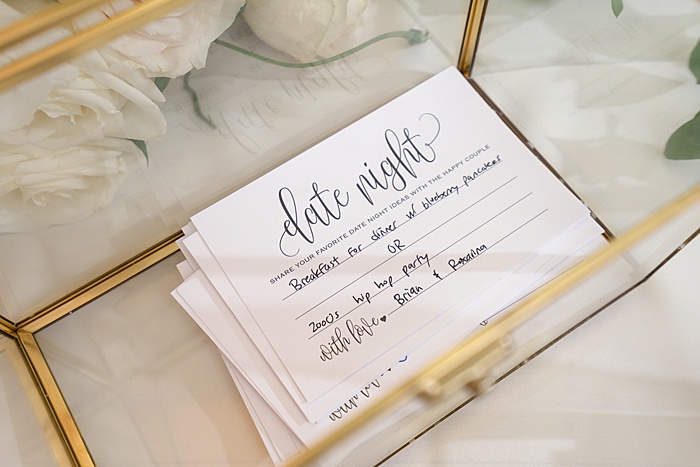 date night
SHARE YOUR FAVORITE DATE NIGHT IDEAS WITH THE HAPPY COUPLE
Breakfast for dinner w/ blueberry pancakes
OR
2000s hip hop party
with love, Brian & Roxanna